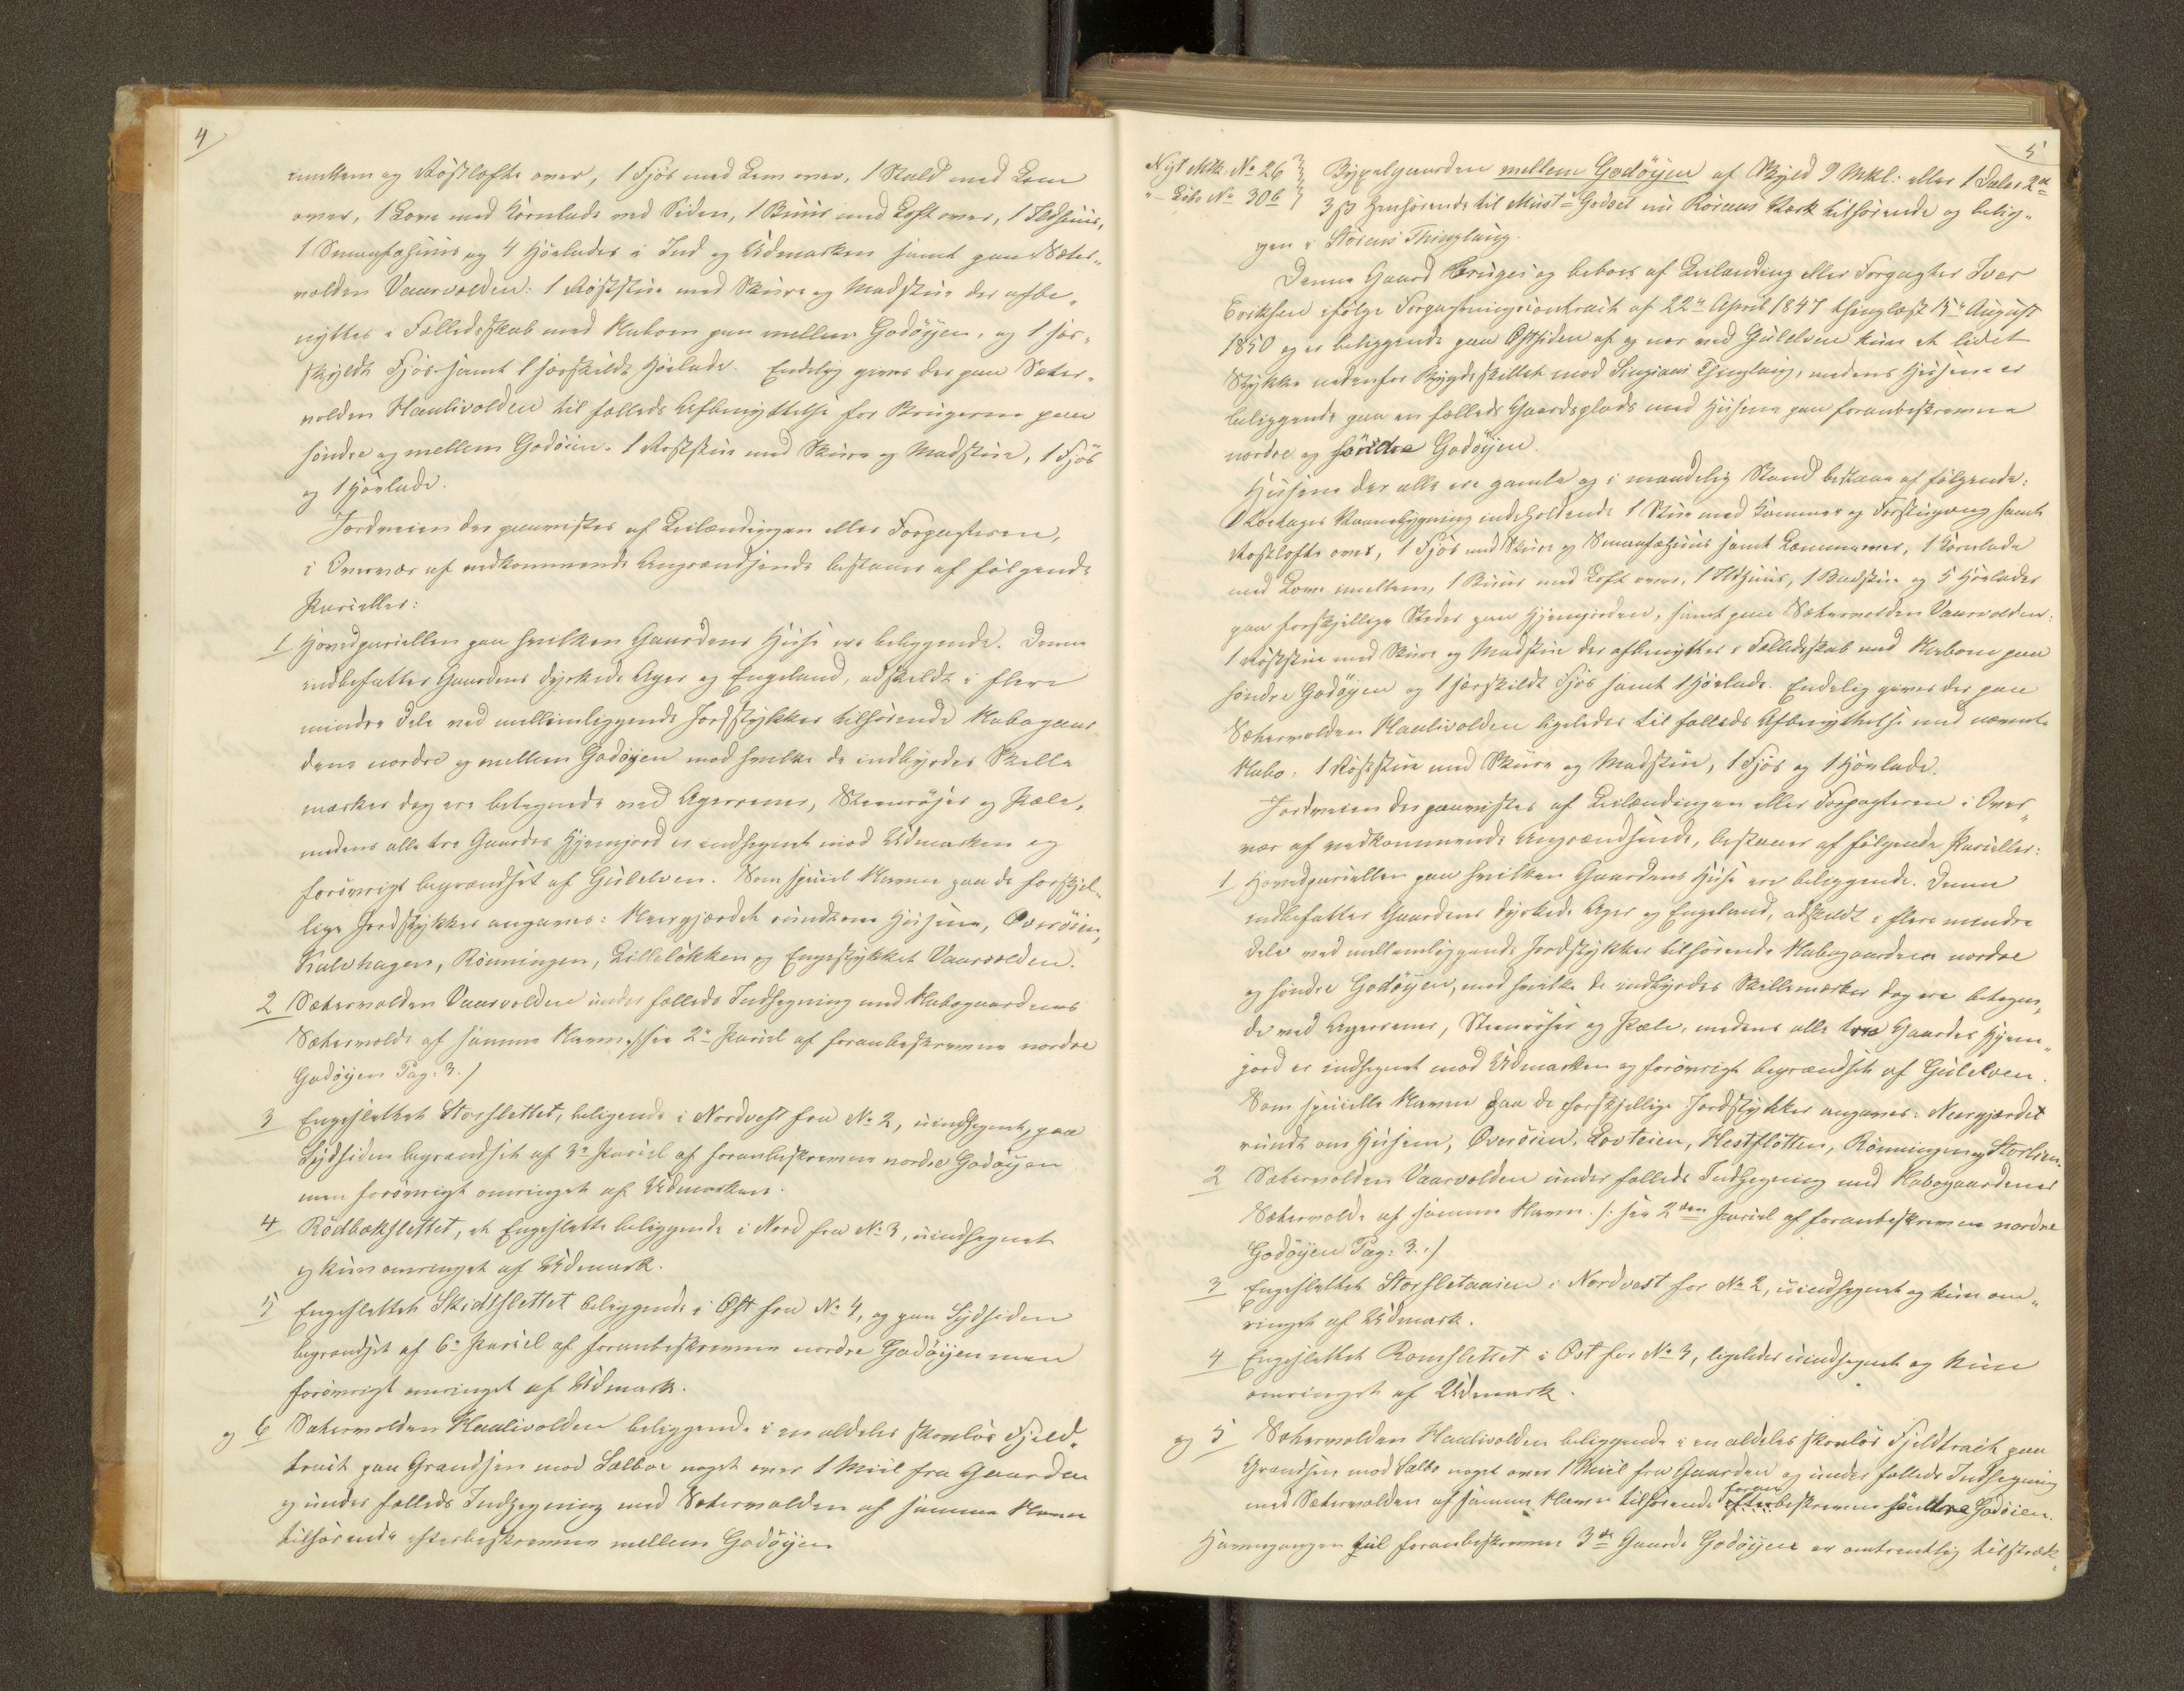 4
imellem og Röstlofte over, 1 Fjös med Lem over, 1 Stald med Lem
over, 1 Love med Kornlade ved Siden, 1 Buur med Loft over, 1 Ildhuus,
1 Smaafæhuus og 4 Höelader i Ind og Udmarken samt paa Sæter„
volden Vaarvolden: 1 Röststue med Skure og Madstue der afbe„
nyttes i Fælledsskab med Naboen paa mellem Godöyen, og 1 sær„
skildt Fjös samt 1 særskildt Höelade. Endelig gives der paa Sæter„
volden Haalivolden til fælleds Afbenyttelse for Brugerne paa
söndre og mellem Godöien. 1 Röststue med Skure og Madstue, 1 Fjös
og 1 Höelade.
Jordveien der paavistes af Leilændingen eller Forpagteren,
i Overvær af vedkommende Angrændsende bestaaer af fölgende
Parceller:
1 Hovedparcellen paa hvilken Gaardens Huse ere beliggende. Denne
indbefatter Gaardens dyrkede Ager og Engeland, adskildt i flere
mindre dele ved mellemliggende Jordstykker tilhörende Nabogaar
dene nordre og mellem Godöyen mod hvilke de indbyrdes Skille
mærker dog ere betegnede ved Agerrener, Steenröser og Pæle,
medens alle tre Gaardes Hjemjord er indhegnet mod Udmarken og
forövrigt begrændset af Gulelven. Som speciel Navne paa de forskjel„
lige Jordstykker angaves: Nærgjærdet rundtom Husene, Overöien,
Kalvhagen, Rönningen, Lillelökken og Engestykket Vaarvolden.
2 Sætervolden Vaarvolden under fælleds Indhegning med Nabogaardenes
Sætervolde af samme Navn /: see 2n Parcel af foranbeskrevne nordre
Godöyen Pag: 3. /
3 Engeslettet Storslettet, beliggende i Nordvest fra No 2, uindhegnet, paa
Sydsiden begrændset af 3n Parcel af foranbeskrevne nordre Godöyen
men forövrigt omringet af Udmarken.
4 Rödbækslettet, et Engeslette beliggende i Nord fra No 3, uindhegnet
og kun omringet af Udmark.
5 Engeslettet Skidtslettet beliggende i Öst fra No 4, og paa Sydsiden
begrændset af 6n Parcel af foranbeskrevne nordre Godöyen men
forövrigt omringet af Udmark.
og 6 Sætervolden Haalivolden beliggende i en aldeles skovlös Fjeld„
tract paa Grændsen mod Sælboe noget over 1 Miil fra Gaarden
og under fælleds Indhegning med Sætervolden af samme Navn
tilhörende efterbeskrevne mellem Godöyen
5
Nyt Mtk: No 26 } Bygselgaarden mellem Godöyen af Skyld 9 Mkl: eller 1 Daler 2 ort
„ – Löbe No 30b } 3 ß henhörende til Must-Godset nu Röraas Værk tilhörende og belig„
gen i Störens Thinglaug.
Denne Gaard bruges og beboes af Leilænding eller Forpagter Iver
Eriksen ifölge Forpagtningscontract af 22n April 1847 thinglæst 15n August
1850 og er beliggende paa Östsiden af og nær ved Gulelven kun et lidet
Stykke nedenfor Bygdeskillet mod Singsaas Thinglaug, medens Husene er
beliggende paa en fælleds Gaardsplads med Husene paa foranbeskrevne
nordre og söndre Godöyen.
Husene der alle ere gamle og i maadelig Stand bestaaer af fölgende:
1 Etages Vaanebygning indeholdende 1 Stue med Kammer og Forstugang samt
Röstlofte over, 1 Fjös med Skure og Smaafæhuus samt Lemme over, 1 Kornlade
med Love imellem, 1 Buur med Loft over, 1 Ildhuus, 1 Badstue og 5 Höelader
paa forskjellige Steder paa Hjemjorden, samt paa Sætervolden Vaarvolden:
1 Röststue med Skure og Madstue der afbenyttes i Fælledsskab med Naboen paa
söndre Godöyen og 1 særskildt Fjös samt 1 Höelade. Endelig gives der paa
Sætervolden Haalivolden ligeledes til fælleds Afbenyttelse med nævnte
Nabo: 1 Röststue med Skure og Madstue, 1 Fjös og 1 Höelade.
Jordveien der paavistes af Leilændingen eller Forpagteren i Over„
vær af vedkommende Angrændsende, bestaaer af fölgende Parceller:
1 Hovedparcellen paa hvilken Gaardens Huse ere beliggende. Denne
indbefatter Gaardens dyrkede Ager og Engeland, adskildt i flere mindre
dele ved mellemliggende Jordstykker tilhörende Nabogaardene nordre
og söndre Godöyen, mod hvilke de indbyrdes Skillemærker dog ere betegne„
de ved Agerrener, Steenröser og Pæle, medens alle tre Gaardes Hjem„
jord er indhegnet mod Udmarken og forövrigt begrændset af Gulelven.
Som specielle Navne paa de forskjellige Jordstykker angaves: Nærgjærdet
rundt om Husene, Overöien, Lovteien, Hestflötten, Rönningen og Storlien.
2 Sætervolden Vaarvolden under fælleds Indhegning med Nabogaardenes
Sætervolde af samme Navn. /: see 2den Parcel af foranbeskrevne nordre
Godöyen Pag: 3. /
3 Engeslettet Storsletaasen i Nordvest for No 2, uindhegnet og kun om„
ringet af Udmark.
4 Engeslettet Romslettet i Öst for No 3, ligeledes uindhegnet og kun
omringet af Udmark.
og 5 Sætervolden Haalivolden beliggende i en aldeles skovlös Fjeldtract paa
Grændsen mod Sælbo noget over 1 Miil fra Gaarden og under fælleds Indhegning
med Sætervolden af samme Navn tilhörende foranbeskrevne söndre Godöien.
Havnegangen til foranbeskrevne 3de Gaarde Godöyen er omtrentlig tilstræk„